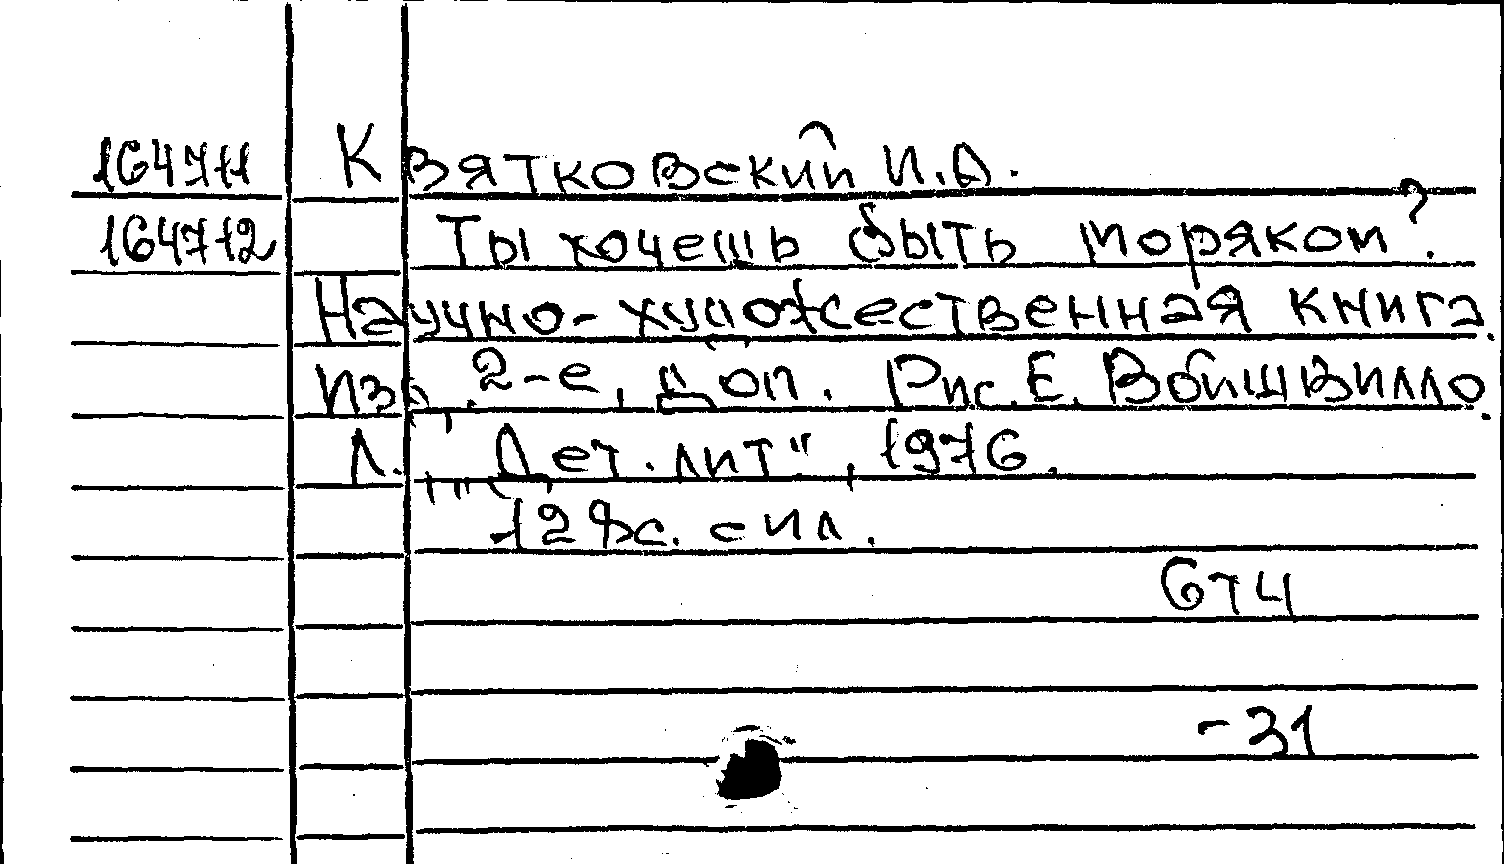 164711 Квятковский И.А.
164712 Ты хочешь быть моряком?
Научно-художественная книга.
Изд. 2-е, доп. Рис. Е. Войшвилло.
Л., "Дет. лит", 1976.
128с. с ил.
6Т4
-31